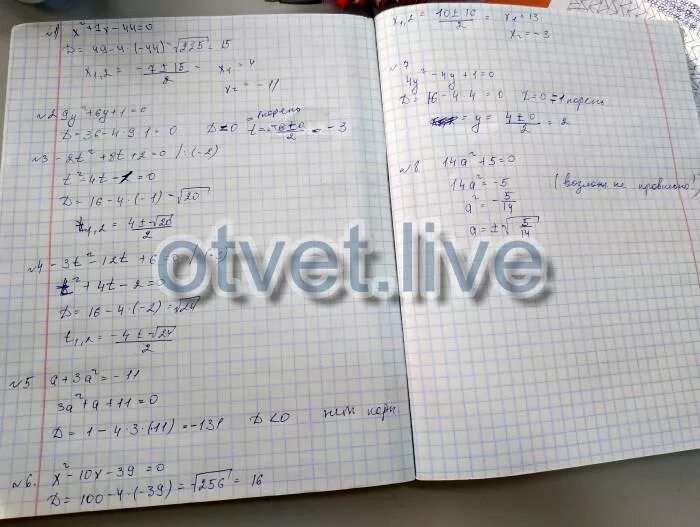 №1 x²+7x-44=0
D=49-4·(-44)=√235=15
x₁,₂ = -7±15/2 = x₁=4
x₂=-11
№2 9y²+6y+1=0
D=36-4·9·1=0 D=0 1 корень t=-6±0/2=-3
№3 -2t²+8t+2=0 /:(-2)
t²-4t-1=0
D=16-4·(-1)=√20
t₁,₂=4±√20/2
№4 -3t²-12t+6=0
t²+4t-2=0
D=16-4·(-2)=√24
t₁,₂=-4±√24/2
№5 a+3a²=-11
3a²+a+11=0
D=1-4·3·(11)=-131 D<0 нет корн.
№6. x²-10x-39=0
D=100-4·(-39)=√256=16
x₁,₂=10±16/2=x₁=13
x₂=-3
№7
4y²-4y+1=0
D=16-4·4=0 D=0 1 корень
=y=4±0/2=2
№8 14a²+5=0
14a²=-5 (возмож. не правильно!)
a²=-5/14
a=±√5/14
otvet.live